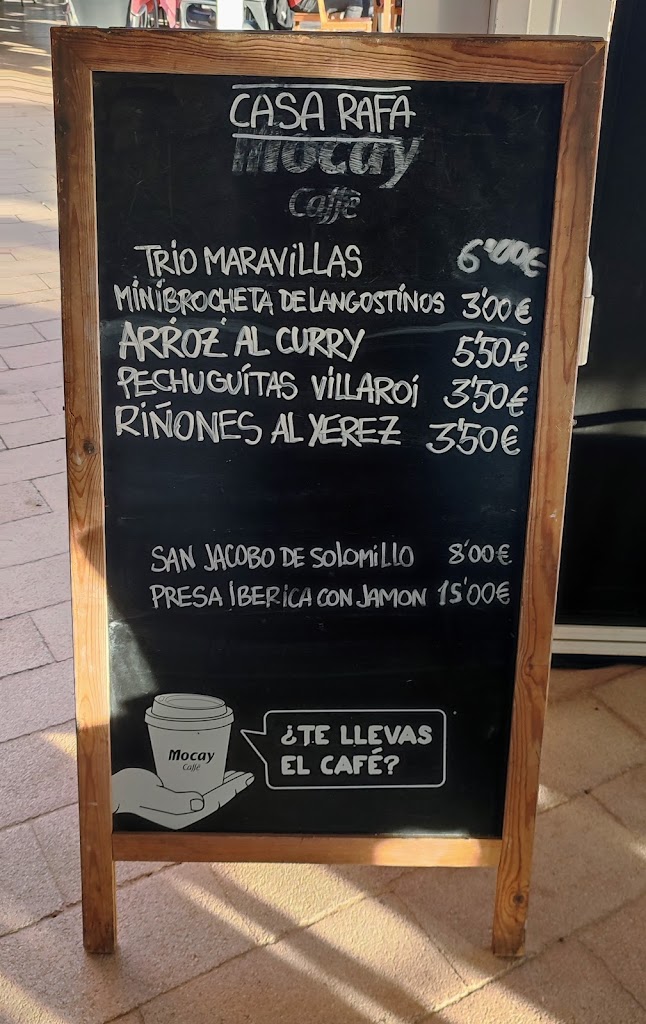 CASA RAFA
Mocay
Caffè
TRIO MARAVILLAS 6'00€
MINIBROCHETA DE LANGOSTINOS 3'00€
ARROZ AL CURRY 5'50€
PECHUGUITAS VILLAROI 3'50€
RIÑONES AL XEREZ 3'50€
SAN JACOBO DE SOLOMILLO 8'00€
PRESA IBERICA CON JAMON 15'00€
¿TE LLEVAS
EL CAFÉ?
Mocay
Caffè